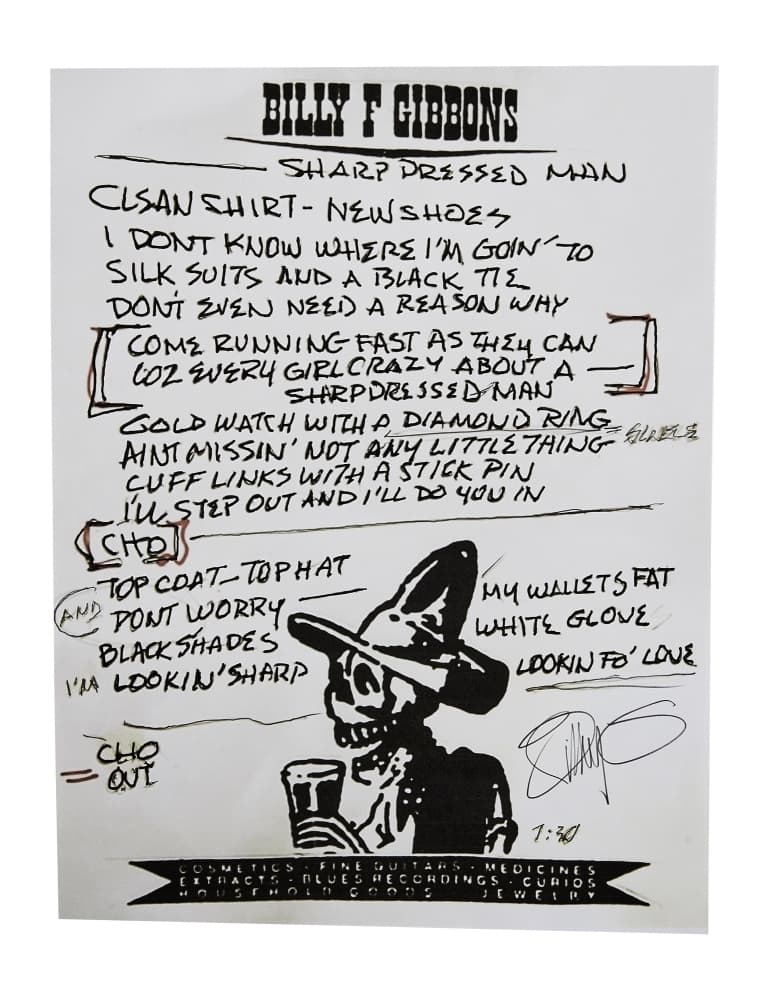 BILLY F GIBBONS
SHARP DRESSED MAN
CLEAN SHIRT - NEW SHOES
I DONT KNOW WHERE I'M GOIN' TO
SILK SUITS AND A BLACK TIE
DON'T EVEN NEED A REASON WHY
COME RUNNING FAST AS THEY CAN
COZ EVERY GIRL CRAZY ABOUT A —
SHARP DRESSED MAN
GOLD WATCH WITH A DIAMOND RING
AINT MISSIN' NOT ANY LITTLE THING
CUFF LINKS WITH A STICK PIN
I'LL STEP OUT AND I'LL DO YOU IN
CHO
TOP COAT - TOP HAT
AND DONT WORRY —
BLACK SHADES
I'M LOOKIN' SHARP
MY WALLETS FAT
WHITE GLOVE
LOOKIN FO' LOVE
CHO
OUT
COSMETICS · FINE GUITARS · MEDICINES
EXTRACTS · BLUES RECORDINGS · CURIOS
HOUSEHOLD GOODS JEWELRY